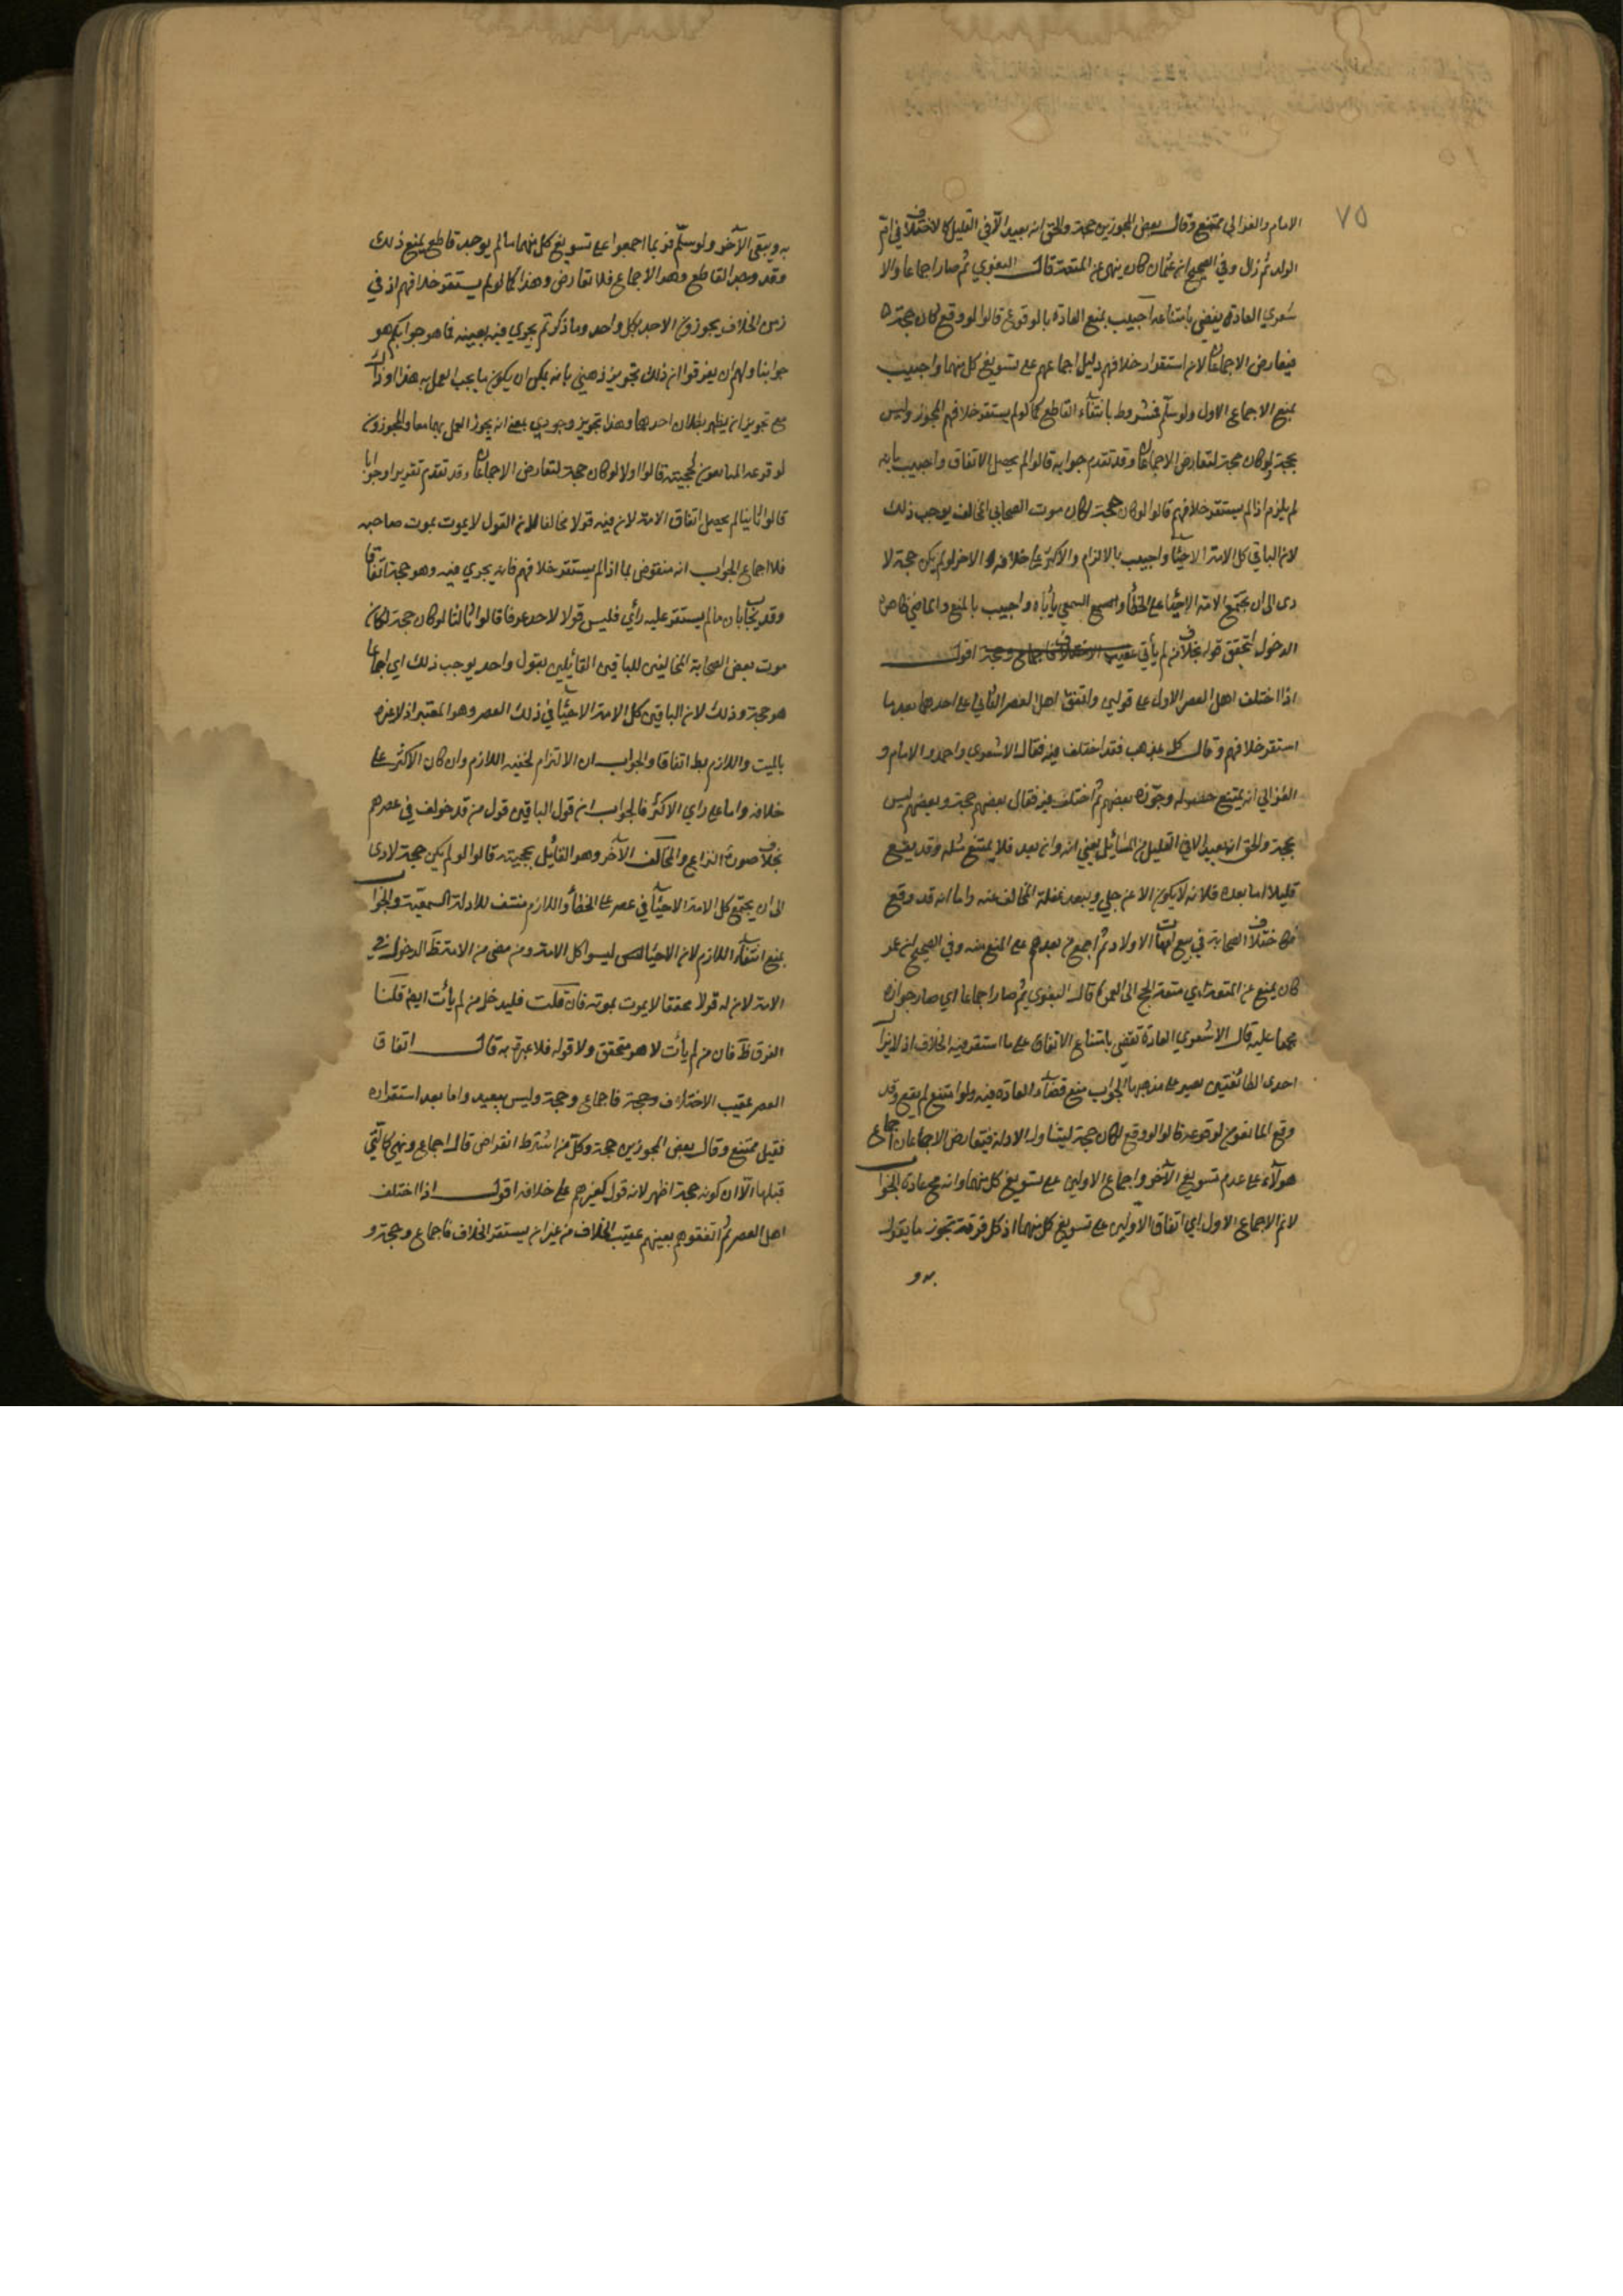 ٧٥
الامام والغزالي ممتنع وقال بعض المجوزين حجة والحق انه بعيد الا في القليل كالاختلاف في ام
الولد ثم زال وفي الصحيح ان عثمان كان ينهى عن المتعة قال البغوي ثم صار اجماعا والا
شعري العادة يقضي بامتناعه اجيب بمنع العادة بالوقوع قالوا لو وقع لكان حجة
فيتعارض الاجماعان لان استقرار خلافهم دليل اجماعهم على تسويغ كل منهما واجيب
بمنع الاجماع الاول ولو سلم فمشروط بانتفاء القاطع كما لو لم يستقر خلافهم المجوز وليس
بحجة لو كان حجة لتعارض الاجماعان وقد تقدم جوابه قالوا لم يحصل الاتفاق واجيب بانه
لم يلزم اذا لم يستقر خلافهم قالوا لو كان حجة لكان موت الصحابي المخالف يوجب ذلك
لان الباقي كل الامة الاحياء واجيب بالالتزام والاكثر على خلافه الاخر لو لم يكن حجة لا
دى الى ان يجتمع الامة الاحياء على الخطأ والسمعي يأباه واجيب بالمنع والماضي ظاهر
الدخول لتحقق قوله بخلاف من لم يأتي اقول
اذا اختلف اهل العصر الاول على قولين واتفق اهل العصر الثاني على احدهما بعد ما
استقر خلافهم وقال كل بمذهب فقد اختلف فيه فقال الاشعري واحمد والامام و
الغزالي انه يمتنع حصوله وجوزه بعضهم ثم اختلف فيه فقال بعضهم حجة وبعضهم ليس
بحجة والحق انه بعيد الا في القليل من المسائل يعني انه وان بعد فلا يمتنع مثله وقد يقع
قليلا اما بعده فلانه لا يكون الا عن جلي ويبعد غفلة المخالف عنه واما انه قد وقع
اختلاف الصحابة في بيع امهات الاولاد ثم اجمع من بعدهم على المنع منه وفي الصحيح ان عمر
كان يمنع عن المتعة اي متعة الحج الى العمرة قال البغوي ثم صار اجماعا اي صار جوازه
مجمعا عليه قال الاشعري العادة تقضي بامتناع الاتفاق على ما استقر فيه الخلاف اذ لا يزال
احدى الطائفتين يصير على مذهبها الجواب منع قضاء العادة فيه ولو امتنع لم يقع وقد
وقع المانعون لوقوعه قالوا لو وقع لكان حجة ليتناوله الادلة فيتعارض الاجماعان اجماع
هولاء على عدم تسويغ الآخر واجماع الاولين على تسويغ كل منهما وانه مح عادة الجواب
لانم الاجماع الاول اي اتفاق الاولين على تسويغ كل منهما اذ كل فرقة تجوز ما يقول
به و
به ويبقى الآخر ولو سلم فربما اجمعوا على تسويغ كل منهما ما لم يوجد قاطع يمنع ذلك
وقد وجد القاطع وهو الاجماع فلا تعارض وهذا كما لو لم يستقر خلافهم اذ في
زمن الخلاف يجوزون الاخذ بكل واحد وما ذكرتم يجري فيه بعينه فما هو جوابكم هو
جوابنا ولهم ان يفرقوا ان ذلك تجويز ذهني بانه يمكن ان يكون ما يجب العمل به هذا او ذاك
مع تجويز ان يظهر بطلان احدهما وهذا تجويز وجودي بمعنى انه يجوز العمل بهما معا والمجوزون
لوقوعه المانعون لحجيته قالوا اولا لو كان حجة لتعارض الاجماعان وقد تقدم تقريرا وجوابا
قالوا ثانيا لم يحصل اتفاق الامة لان فيه قولا مخالفا لان القول لا يموت بموت صاحبه
فلا اجماع الجواب انه منقوض بما اذا لم يستقر خلافهم فانه يجري فيه وهو حجة اتفاقا
وقد يجاب بان ما لم يستقر عليه رأي فليس قولا لاحد عرفا قالوا ثالثا لو كان حجة لكان
موت بعض الصحابة المخالفين للباقين القائلين بقول واحد يوجب ذلك اي اجماعا
هو حجة وذلك لان الباقين كل الامة الاحياء في ذلك العصر وهو المعتبر اذ لا عبرة
بالميت واللازم بط اتفاقا والجواب ان الالتزام لحقيه اللازم وان كان الاكثر على
خلافه واما على راي الاكثر فالجواب ان قول الباقين قول من قد خولف في عصرهم
بخلاف صورة النزاع والمخالف الآخر وهو القائل بحجيته قالوا لو لم يكن حجة لادى
الى ان يجتمع كل الامة الاحياء في عصر على الخطأ واللازم منتف للادلة السمعية والجواب
بمنع انتفاء اللازم لان الاحياء ليسوا كل الامة ومن مضى من الامة ظ الدخول في
الامة لان له قولا محققا لا يموت بموته فان قلت فليدخل من لم يأت ايضا قلنا
الفرق ظ فان من لم يأت لا هو متحقق ولا قوله فلا عبرة به قال اتفاق
العصر عقيب الاختلاف وحجة فاجماع وحجة وليس ببعيد واما بعد استقراره
فقيل ممتنع وقال بعض المجوزين حجة وكل من اشترط انقراض قال اجماع وهي كالتي
قبلها الا ان كونه حجة اظهر لانه قول لغيرهم على خلافه اقول اذا اختلف
اهل العصر ثم اتفقوا هم بعينهم عقيب الخلاف من غير ان يستقر الخلاف فاجماع وحجة و